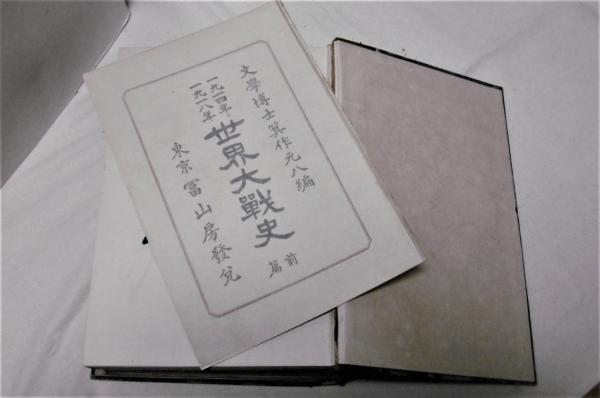 文學博士箕作元八編
一九一四年
一九一八年
世界大戰史
前篇
東京冨山房發兌